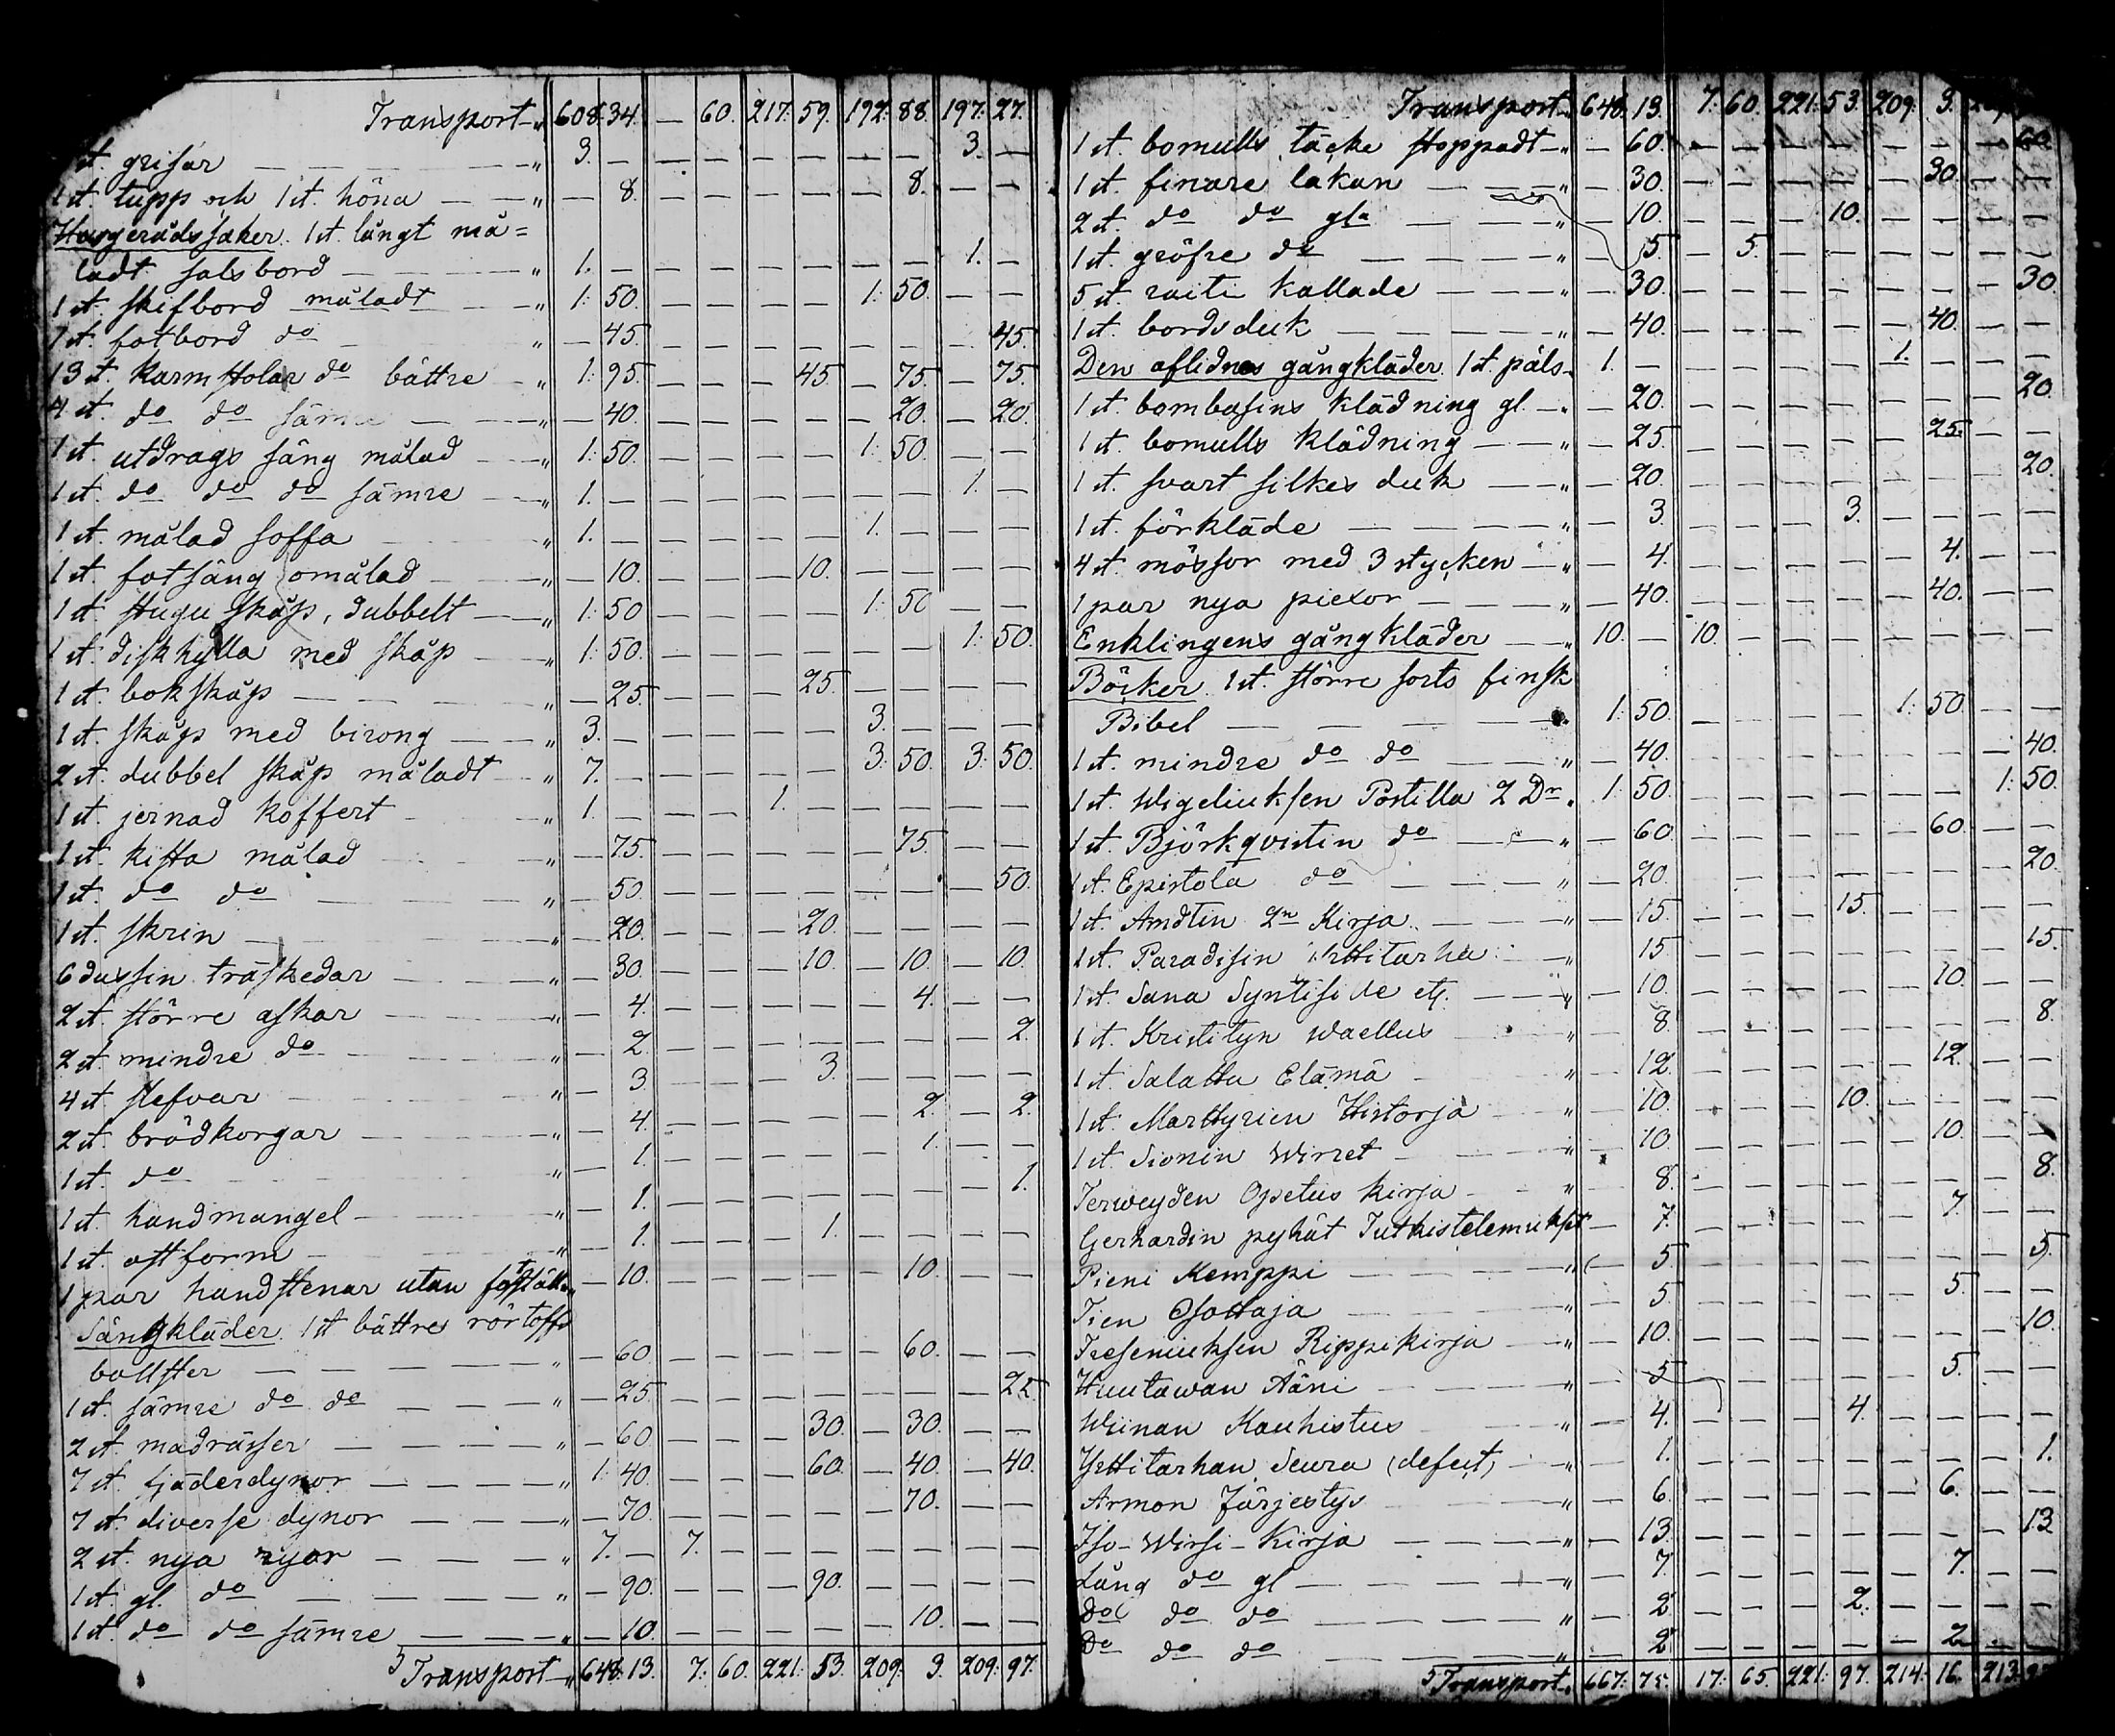 Transport „ 608. 34. — 60. 217. 59. 192. 88. 197. 27.
st. grisar — „ 3. — — — — — — — 3. —
1 st. tupp och 1 st. höna — „ — 8. — — — — — 8. — —
Husgerådssaker. 1 st. långt må=
ladt salsbord — „ 1. — — — — — — — 1. —
1 st. skifbord måladt — „ 1: 50. — — — — 1: 50. — —
1 st. fotbord do — „ — 45. — — — — — — — 45.
13 st. karmstolar do bättre — „ 1: 95. — — — 45. — 75. — 75.
4 st. do do sämre — „ — 40. — — — — — 20. — 20.
1 st. utdrags säng målad — „ 1: 50. — — — — 1: 50. — —
1 st. do do do sämre — „ 1. — — — — — — — 1. —
1 st. målad soffa — „ 1. — — — — — 1. — — —
1 st. fotsäng omålad — „ — 10. — — — 10. — — — —
1 st. stugu skåp, dubbelt — „ 1: 50 — — — — 1: 50 — —
1 st. diskhylla med skåp — „ 1: 50. — — — — — — 1: 50.
1 st. bokskåp — „ — 25. — — — 25. — — — —
1 st. skåp med birong — „ 3. — — — — — 3. — — —
2 st. dubbel skåp måladt — „ 7. — — — — — 3: 50. 3: 50.
1 st. jernad koffert — „ 1. — — — 1. — — — — —
1 st. kista målad — „ — 75. — — — — — 75. — —
1 st. do do — „ — 50 — — — — — — — 50.
1 st. skrin — „ — 20. — — — 20. — — — —
6 dussin träskedar — „ — 30. — — — 10. — 10. — 10.
2 st. större askar — „ — 4. — — — — — 4. — —
2 st. mindre do — „ — 2. — — — — — — — 2.
4 st. stefvar — „ — 3 — — — 3. — — — —
2 st. brödkorgar — „ — 4. — — — — — 2. — 2.
1 st. do — „ — 1. — — — — — 1. — —
1 st. handmangel — „ — 1. — — — — — — — 1.
1 st. ostform — „ — 1. — — — 1. — — — —
1 par handstenar utan — 10. — — — — — 10. — —
Sängkläder. 1 st bättre
bollster — „ — 60. — — — — — 60. — —
1 st. sämre do do — „ — 25 — — — — — — — 25
2 st. madrasser — „ — 60 — — — 30. — 30. — —
7 st. fjäderdynor — „ 1: 40. — — — 60. — 40. — 40.
7 st. diverse dynor — „ — 70. — — — — — 70. — —
2 st. nya ryor — „ 7. — 7. — — — — — — —
1 st. gl. do — „ — 90. — — — 90. — — — —
1 st. do do sämre — „ — 10. — — — — — 10. — —
Transport „ 648. 13. 7: 60. 221: 53. 209: 3. 209: 97.
Transport „ 648. 13. 7: 60. 221: 53. 209: 3.
1 st. bomulls täcke stoppadt „ — 60. — — — — — — — 60.
1 st. finare lakan — „ — 30. — — — — — 30. — —
2 st. do do gla — „ — 10. — — — 10. — — — —
1 st. gröfre do — „ — 5. — 5. — — — — — —
5 st raiti kallade — „ — 30. — — — — — — — 30.
1 st. bordsduk — „ — 40. — — — — — 40. — —
Den aflidnes gångkläder. 1 st. päls „ 1. — — — — — 1. — — —
1 st. bombasins klädning gl. „ — 20. — — — — — — — 20.
1 st. bomulls klädning — „ — 25 — — — — — 25. — —
1 st. svart silkes duk — „ — 20. — — — — — — — 20.
1 st. förkläde — „ — 3. — — — 3. — — — —
4 st. mössor med 3 stycken — „ — 4. — — — — — 4. — —
1 par nya piexor — „ — 40. — — — — — 40. — —
Enklingens gångkläder — „ 10. — 10. — — — — — — —
Böcker. 1 st. större sorts finsk
Bibel — „ 1: 50. — — — — 1: 50. — —
1 st. mindre do do — „ — 40. — — — — — — — 40.
1 st. Wigeliuksen Postilla 2 Dr. „ 1: 50. — — — — — — 1: 50.
1 st. Björkqvistin do — „ — 60. — — — — — 60. — —
1 st. Epistola do — „ — 20. — — — — — — — 20.
1 st. Arndtin 2n Kirja — „ — 15. — — — 15. — — — —
1 st. Paradisin Yrttitarha — „ 15. — — — — — — — 15.
1 st. Sana Syntisille — „ — 10. — — — — — 10. — —
1 st. Kristityn Waellus „ 8. — — — — — — — 8.
1 st. Salattu Elämä — „ — 12. — — — — — 12. — —
1 st. Marttyrien Historja — „ — 10. — — — 10. — — — —
1 st. Sionin Wirret — „ — 10. — — — — — 10. — —
Terweyden Opetus kirja — „ — 8. — — — — — — — 8.
Gerhardin pyhät Tutkistelemukset — 7. — — — — — 7. — —
Pieni Kemppi — „ — 5 — — — — — — — 5.
Tien Osottaja — „ — 5. — — — — — 5. — —
Freseniuksen Rippikirja — „ — 10. — — — — — — — 10.
Huutawan Ääni — „ — 5 — — — — — 5. — —
Wiinan Kauhistus — „ — 4. — — — 4. — — — —
Yrttitarhan Seura (defect) — „ — 1. — — — — — — — 1.
Armon Järjestys — „ — 6. — — — — — 6. — —
Iso-Wirsi-Kirja — „ — 13. — — — — — — — 13
Lång do gl — „ — 7. — — — — — 7. — —
Do do do — „ — 2 — — — 2. — — — —
Do do do — „ — 2 — — — — — 2 — —
Transport „ 667: 75. 17: 65. 221: 97. 214: 16. 213: